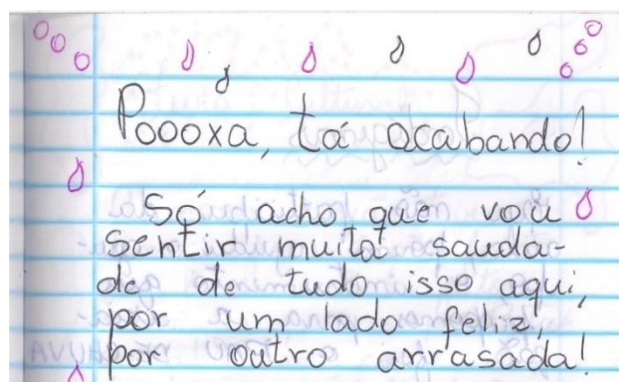 Poooxa, tá acabando!
Só acho que vou
sentir muita sauda-
de de tudo isso aqui,
por um lado feliz,
por outro arrasada!